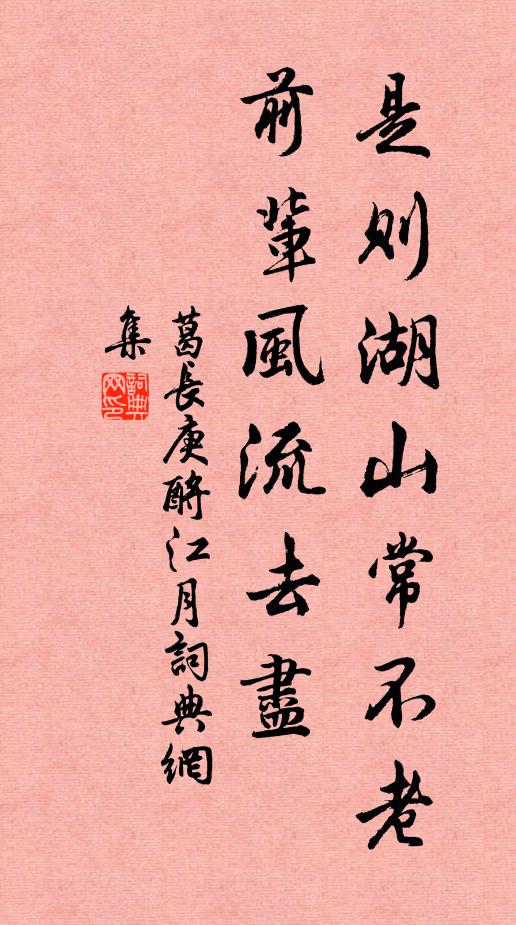 是则湖山常不老
前輩風流去盡
葛長庚酹江月詞典網
集
詞典
网印